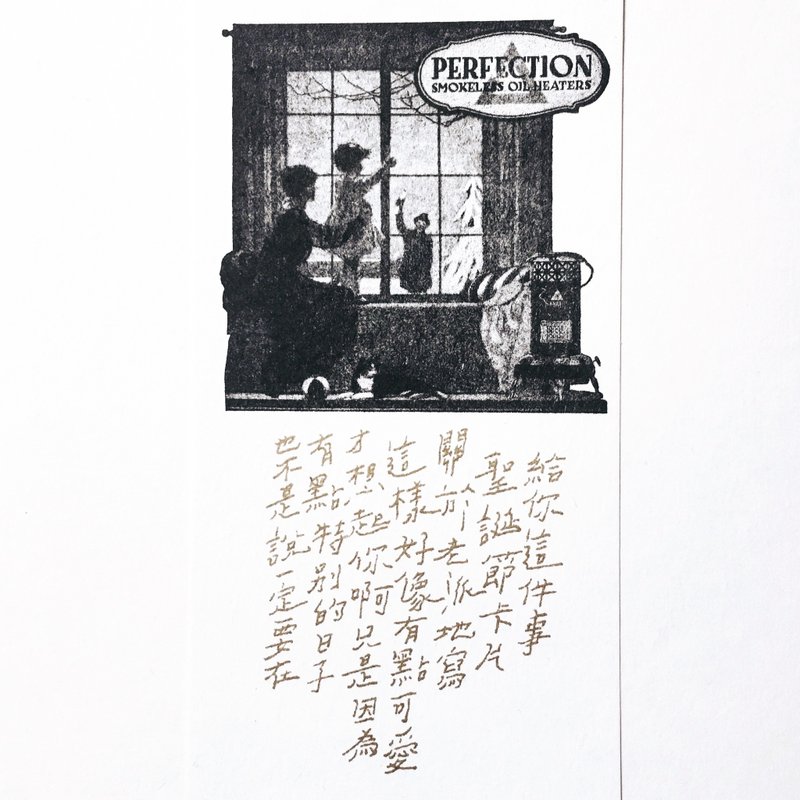 PERFECTION
SMOKELESS OIL HEATERS
也不是說一定要在
有點特別的日子
才想起你啊只是因為
這樣好像有點可愛
關於老派地寫
聖誕節卡片
給你這件事